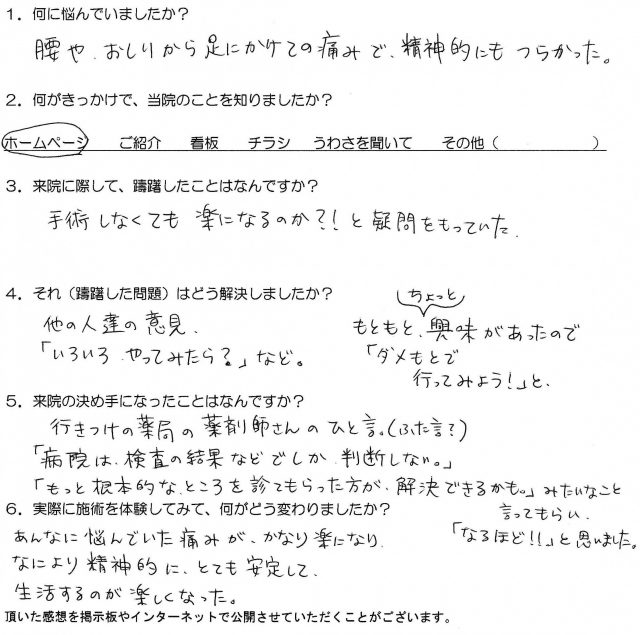 1．何に悩んでいましたか？
腰や、おしりから足にかけての痛みで、精神的にもつらかった。
2．何がきっかけで、当院のことを知りましたか？
ホームページ　ご紹介　看板　チラシ　うわさを聞いて　その他（　　　　　　）
3．来院に際して、躊躇したことはなんですか？
手術しなくても楽になるのか？！と疑問をもっていた。
4．それ（躊躇した問題）はどう解決しましたか？
他の人達の意見、
「いろいろ、やってみたら？」など。
ちょっと
もともと、興味があったので
「ダメもとで
行ってみよう！」と、
5．来院の決め手になったことはなんですか？
行きつけの薬局の薬剤師さんのひと言。（ふた言？）
「病院は、検査の結果などでしか、判断しない。」
「もっと根本的な、ところを診てもらった方が、解決できるかも。」みたいなこと
言ってもらい、
「なるほど！！」と思いました。
6．実際に施術を体験してみて、何がどう変わりましたか？
あんなに悩んでいた痛みが、かなり楽になり、
なにより精神的に、とても安定して、
生活するのが楽しくなった。
頂いた感想を掲示板やインターネットで公開させていただくことがございます。